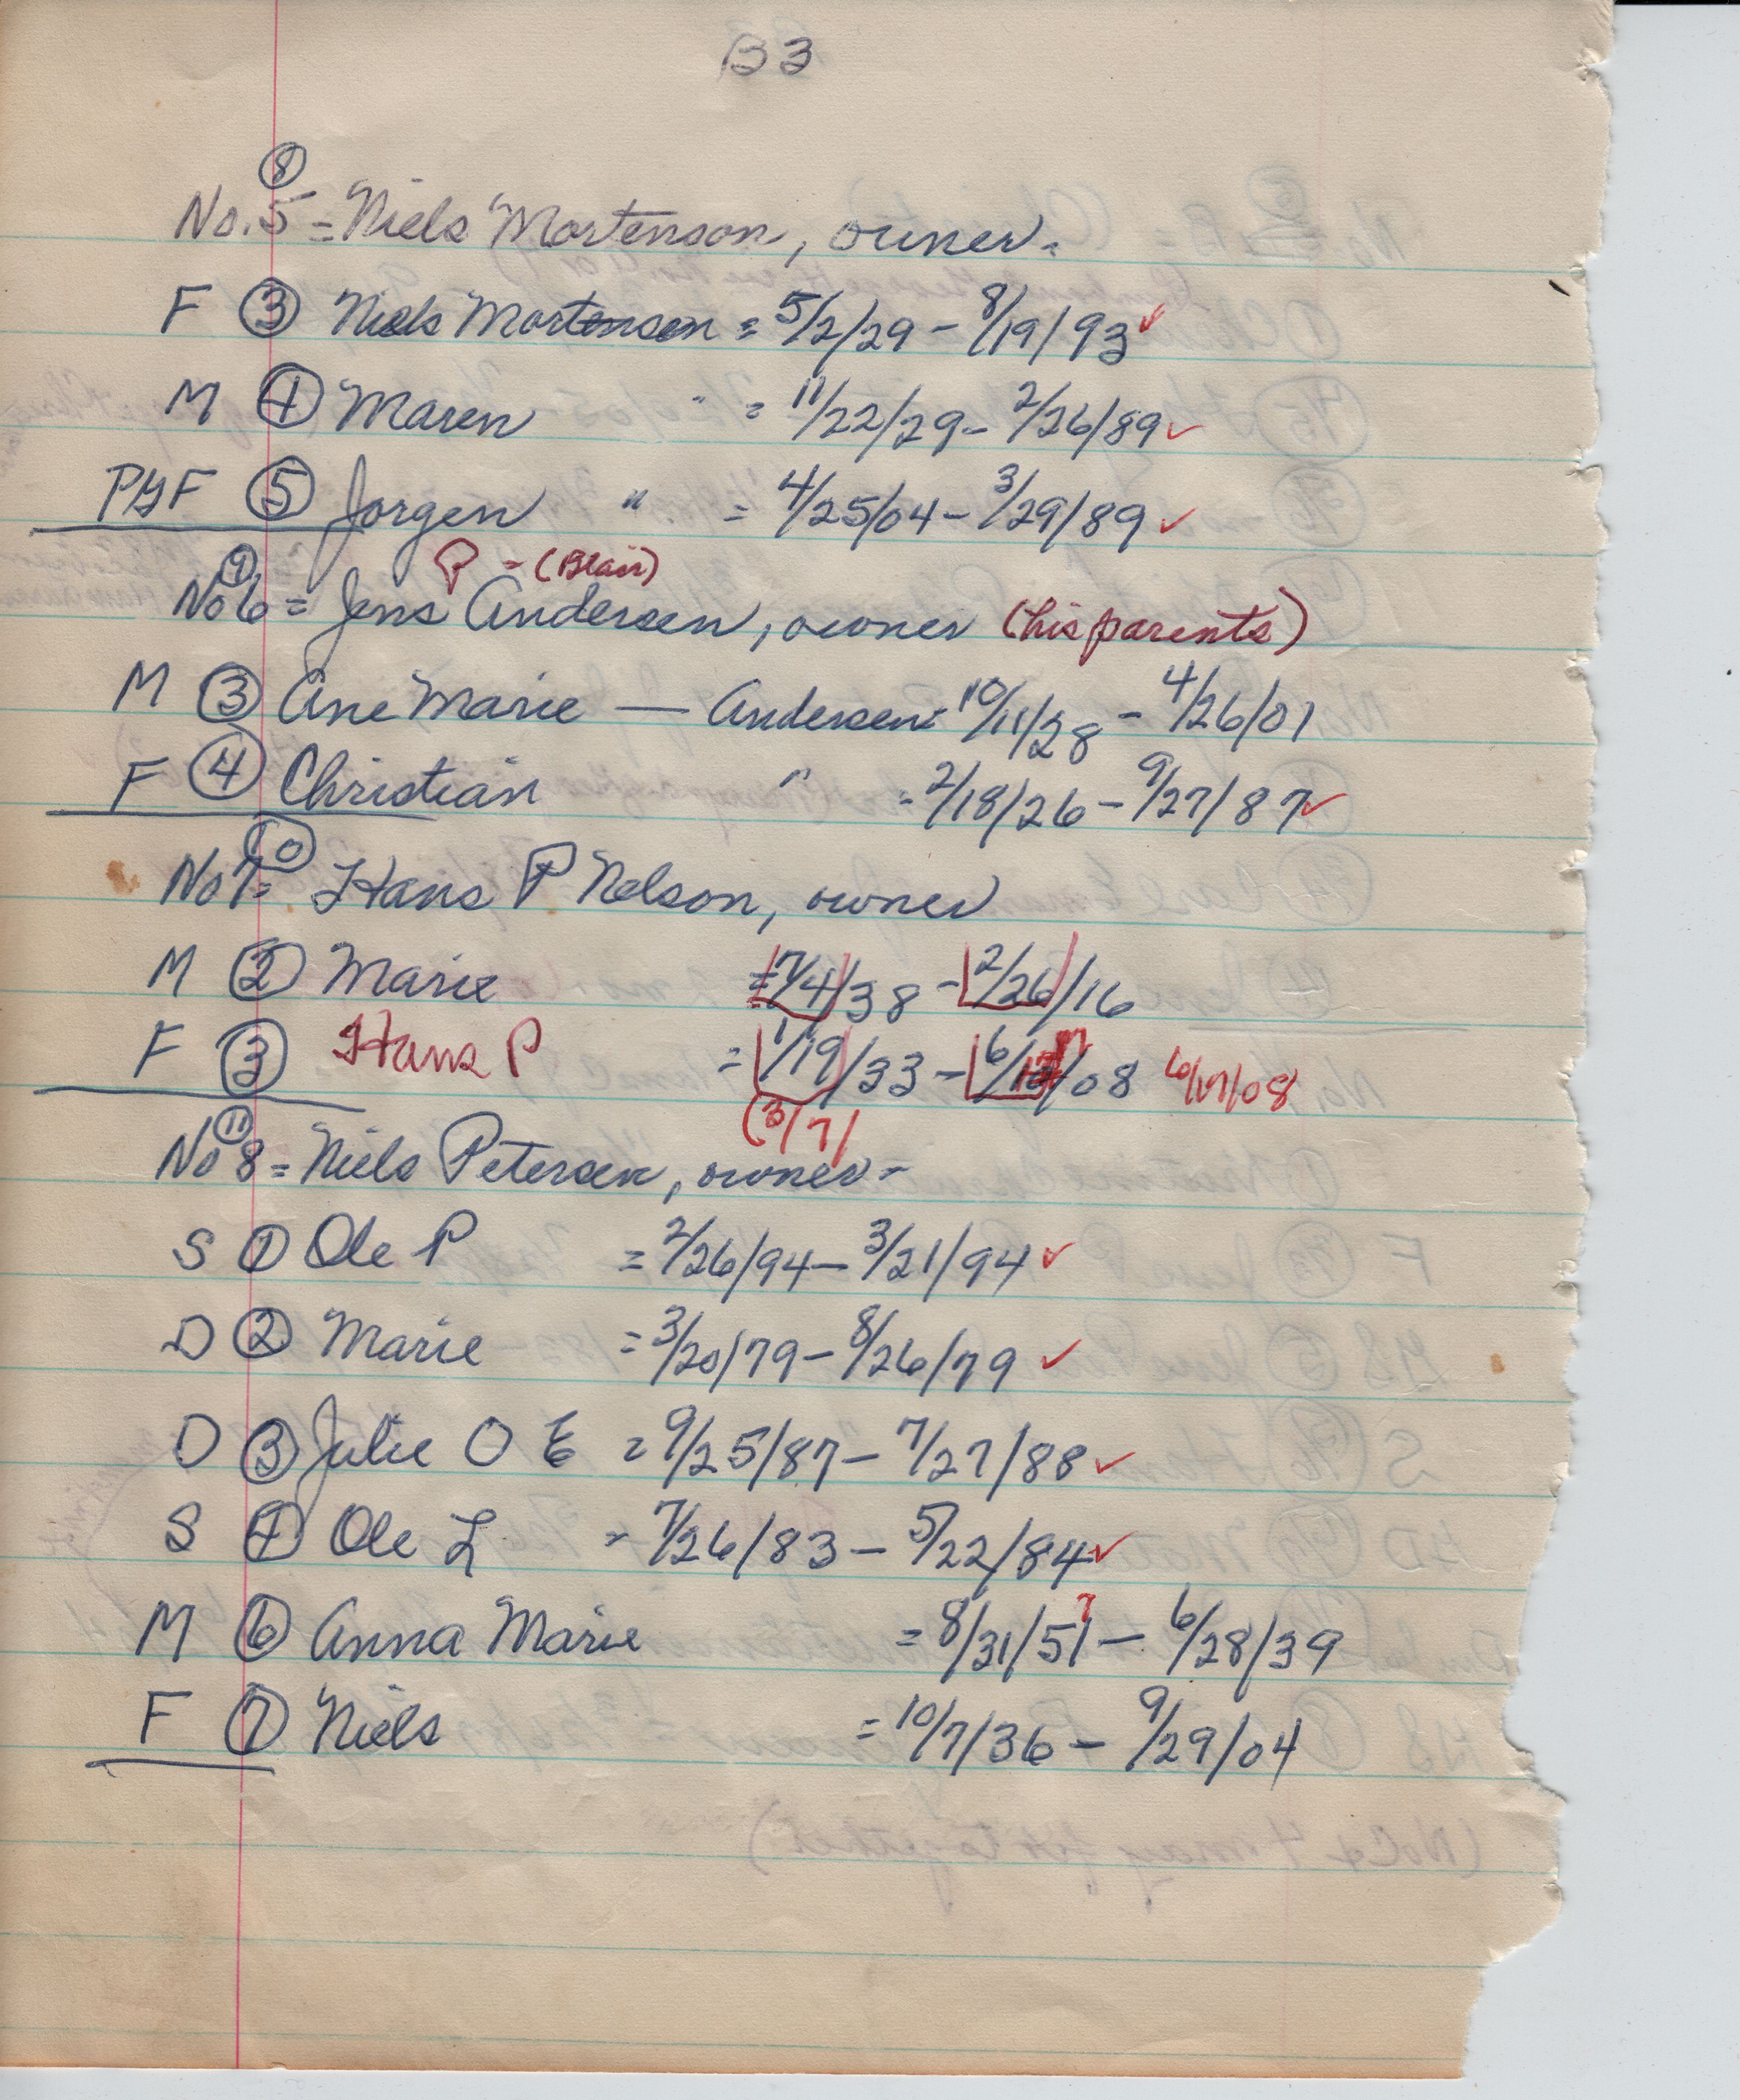 B3
⑧
No. 5 = Niels Mortenson, owner.
F ③ Niels Mortensen = 5/2/29 - 8/19/93 ✓
M ④ Maren " = 11/22/29 - 2/26/89 ✓
F ⑤ Jorgen " = 4/25/04 - 3/29/89 ✓
⑨ P - (Blair)
No 6 = Jens Andersen, owner (his parents)
M ③ Ane Marie — Andersen = 10/11/28 - 4/26/01
F ④ Christian " = 2/18/26 - 9/27/87 ✓
⑩
No 7 = Hans P Nelson, owner
M ② Marie = 7/4/38 - 2/26/16
F ③ Hans P = 1/19/33 - 6/17/08 6/17/08
(3/7/
⑪
No 8 = Niels Petersen, owner -
S ① Ole P = 2/26/94 - 3/21/94 ✓
D ② Marie = 3/20/79 - 8/26/79 ✓
D ③ Julie O E = 9/25/87 - 7/27/88 ✓
S ④ Ole L = 7/26/83 - 5/22/84 ✓
M ⑥ Anna Marie = 8/31/51 ? - 6/28/39
F ⑦ Niels = 10/7/36 - 9/29/04